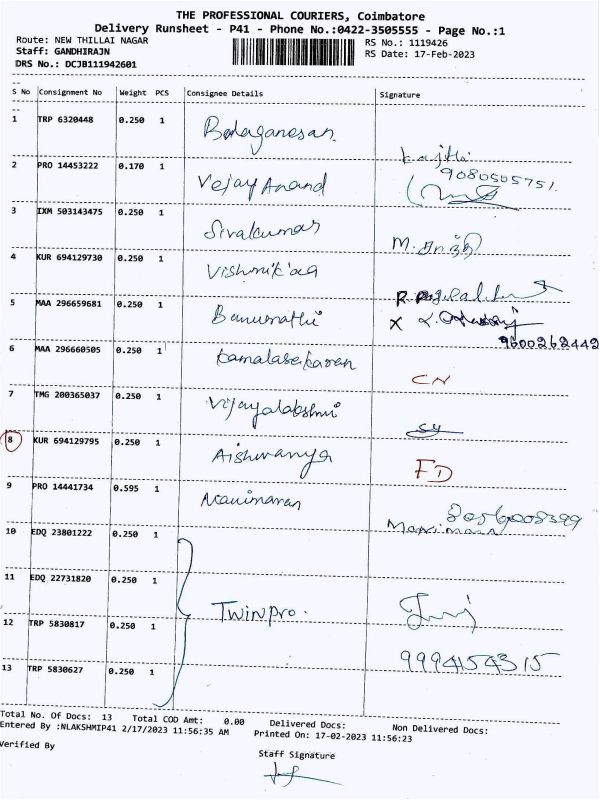 THE PROFESSIONAL COURIERS, Coimbatore
Delivery Runsheet - P41 - Phone No.:0422-3505555 - Page No.:1
Route: NEW THILLAI NAGAR RS No.: 1119426
Staff: GANDHIRAJN RS Date: 17-Feb-2023
DRS No.: DCJB111942601
S No Consignment No Weight PCS Consignee Details Signature
1 TRP 6320448 0.250 1 Balaganesan
2 PRO 14453222 0.170 1 Vejay Anand 9080505751
3 IXM 503143475 0.250 1 Sivakumar
4 KUR 694129730 0.250 1
5 MAA 296659681 0.250 1 Banumathi
9600262442
6 MAA 296660505 0.250 1 Kamalasekaran CN
7 TMG 200365037 0.250 1 Vijayalakshmi
8 KUR 694129795 0.250 1 Aishwarya FD
9 PRO 14441734 0.595 1 Manimaran 8056008399
Manimaran
10 EDQ 23801222 0.250 1
11 EDQ 22731820 0.250 1
Twinpro.
12 TRP 5830817 0.250 1
9994154315
13 TRP 5830627 0.250 1
Total No. Of Docs: 13 Total COD Amt: 0.00 Delivered Docs: Non Delivered Docs:
Entered By :NLAKSHMIP41 2/17/2023 11:56:35 AM Printed On: 17-02-2023 11:56:23
Verified By
Staff Signature